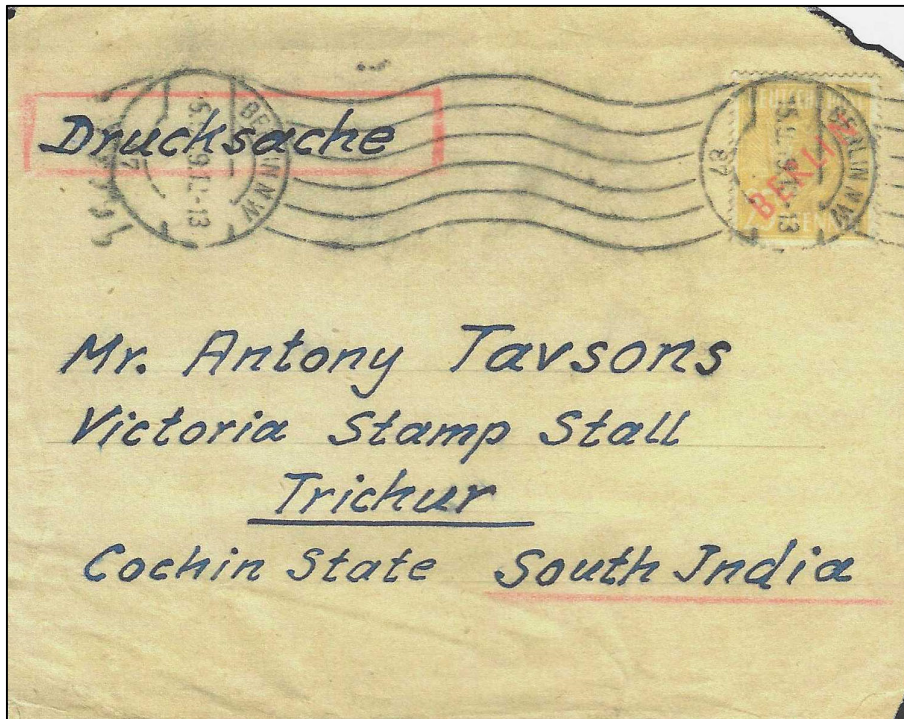 Drucksache
BERLIN NW
DEUTSCHE POST
BERLIN
BERLIN NW
Mr. Antony Tavsons
Victoria Stamp Stall
Trichur
Cochin State South India